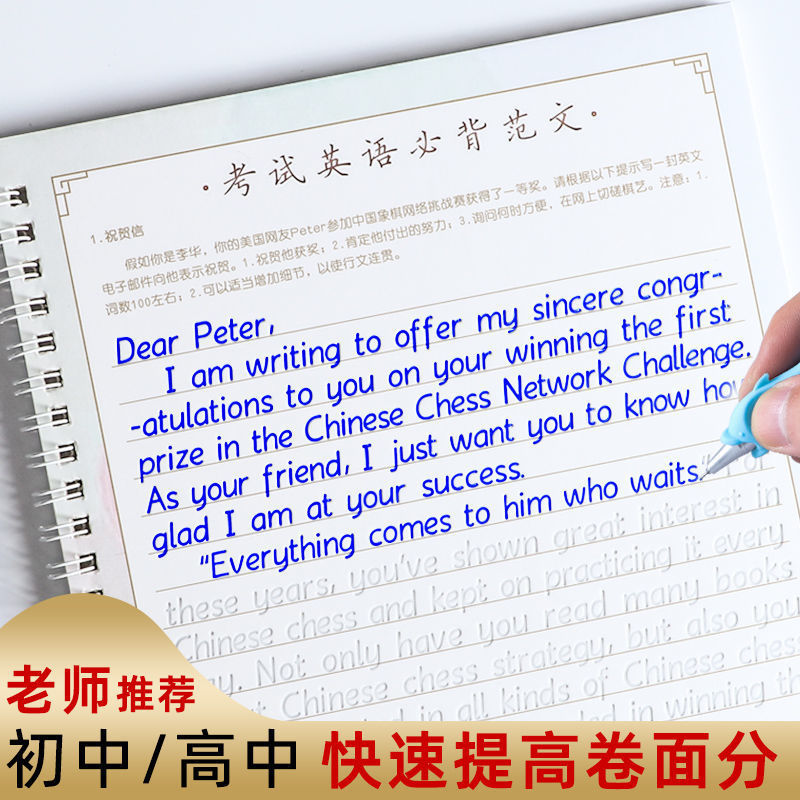 ·考试英语必背范文·
1.祝贺信
假如你是李华，你的美国网友Peter参加中国象棋网络挑战赛获得了一等奖。请根据以下提示写一封英文
电子邮件向他表示祝贺。1.祝贺他获奖；2.肯定他付出的努力；3.询问何时方便，在网上切磋棋艺。注意：1.
词数100左右；2.可以适当增加细节，以使行文连贯。
Dear Peter,
I am writing to offer my sincere congr-
-atulations to you on your winning the first
prize in the Chinese Chess Network Challenge.
As your friend, I just want you to know how
glad I am at your success.
"Everything comes to him who waits."
these years, you've shown great interest in
Chinese chess and kept on practicing it every
Not only have you read many books
Chinese chess strategy, but also you
in all kinds of Chinese chess
in winning the
老师推荐
初中/高中 快速提高卷面分